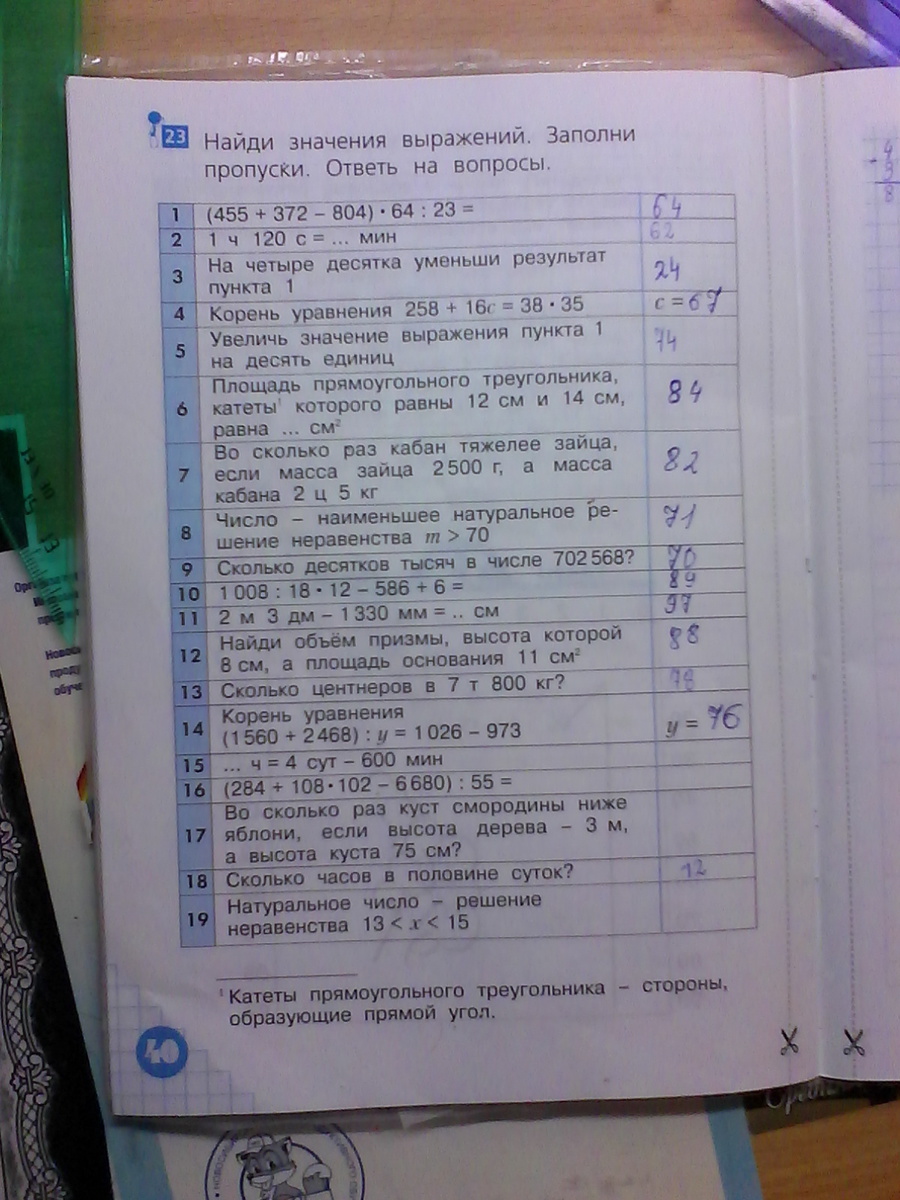 23 Найди значения выражений. Заполни
пропуски. Ответь на вопросы.
1 (455 + 372 – 804) · 64 : 23 = 64
2 1 ч 120 с = ... мин 62
3 На четыре десятка уменьши результат
пункта 1 24
4 Корень уравнения 258 + 16c = 38 · 35 c = 67
5 Увеличь значение выражения пункта 1
на десять единиц 74
6 Площадь прямоугольного треугольника,
катеты¹ которого равны 12 см и 14 см,
равна ... см² 84
7 Во сколько раз кабан тяжелее зайца,
если масса зайца 2 500 г, а масса
кабана 2 ц 5 кг 82
8 Число – наименьшее натуральное ре-
шение неравенства m > 70 71
9 Сколько десятков тысяч в числе 702 568? 70
10 1 008 : 18 · 12 – 586 + 6 =
11 2 м 3 дм – 1 330 мм = .. см 97
12 Найди объём призмы, высота которой
8 см, а площадь основания 11 см² 88
13 Сколько центнеров в 7 т 800 кг? 78
14 Корень уравнения
(1 560 + 2 468) : y = 1 026 – 973 y = 76
15 ... ч = 4 сут – 600 мин
16 (284 + 108 · 102 – 6 680) : 55 =
17 Во сколько раз куст смородины ниже
яблони, если высота дерева – 3 м,
а высота куста 75 см?
18 Сколько часов в половине суток? 12
19 Натуральное число – решение
неравенства 13 < x < 15
¹ Катеты прямоугольного треугольника – стороны,
образующие прямой угол.
40